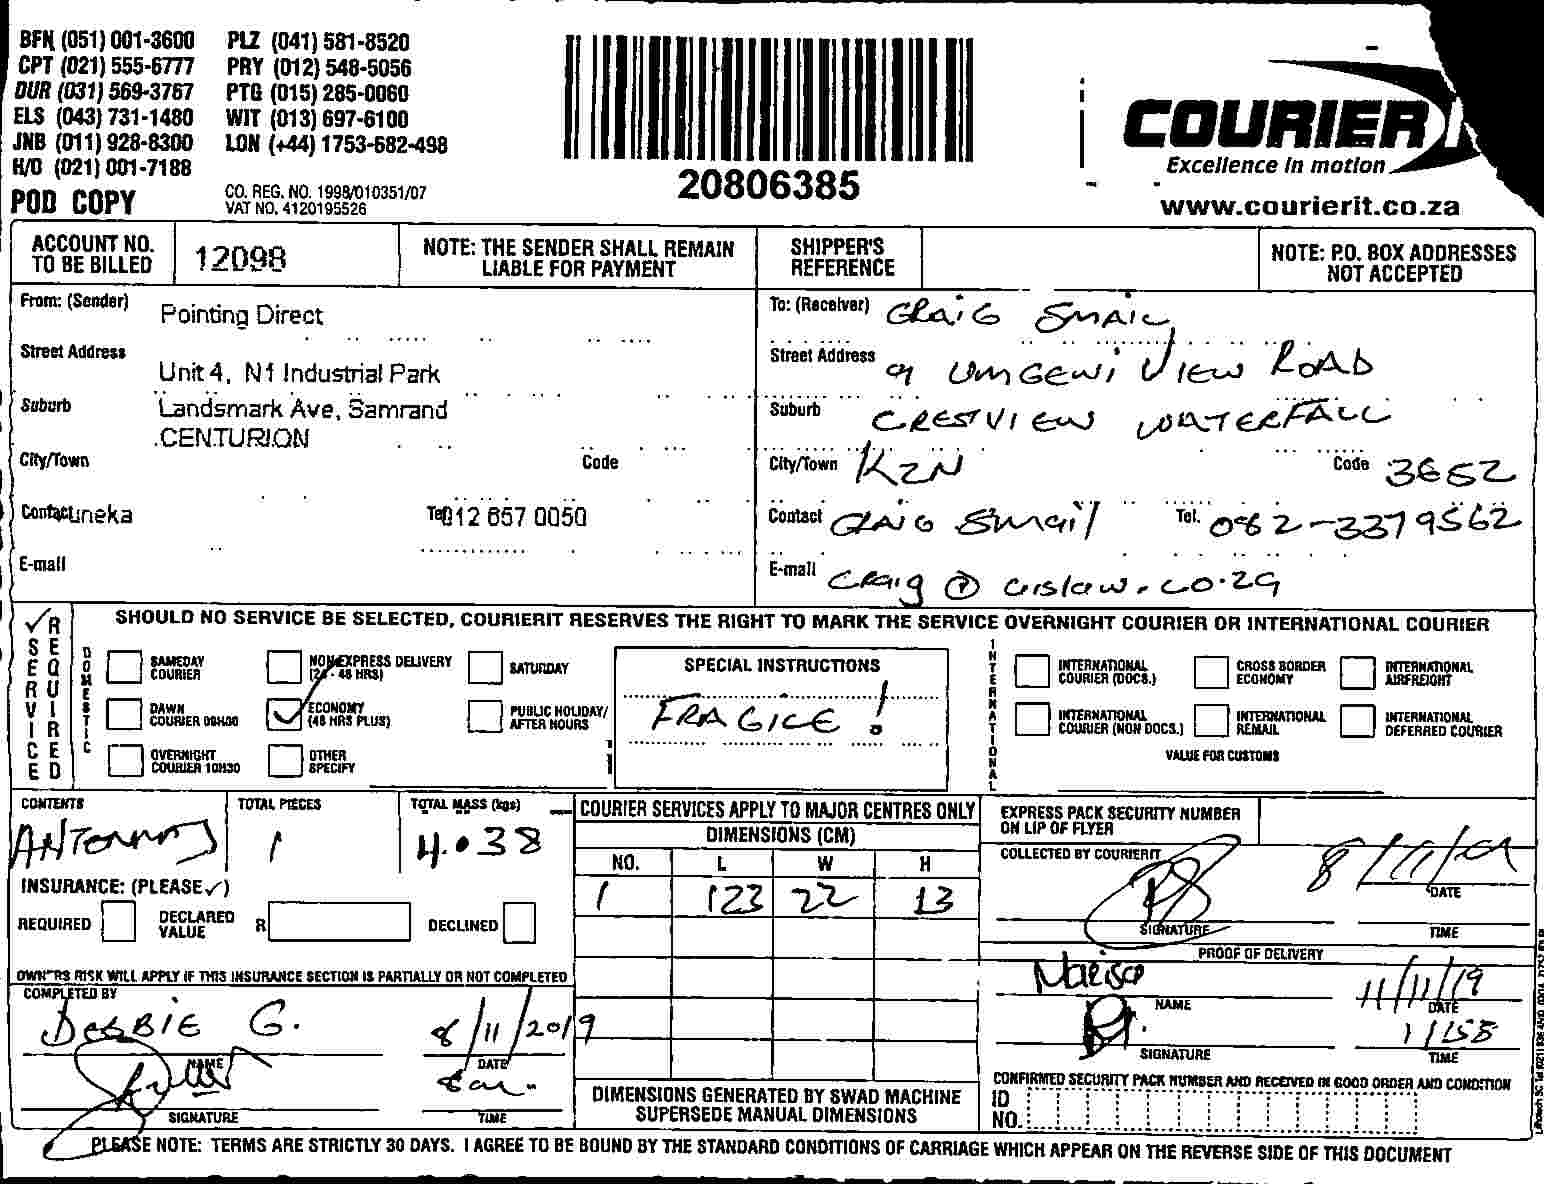 BFN (051) 001-3600 PLZ (041) 581-8520
CPT (021) 555-6777 PRY (012) 548-5056
DUR (031) 569-3767 PTG (015) 285-0060
ELS (043) 731-1480 WIT (013) 697-6100
JNB (011) 928-8300 LON (+44) 1753-682-498
H/O (021) 001-7188
POD COPY
CO. REG. NO. 1998/010351/07
VAT NO. 4120195526
20806385
COURIER
Excellence in motion
www.courierit.co.za
ACCOUNT NO. TO BE BILLED 12098
NOTE: THE SENDER SHALL REMAIN LIABLE FOR PAYMENT
SHIPPER'S REFERENCE
NOTE: P.O. BOX ADDRESSES NOT ACCEPTED
From: (Sender) Pointing Direct
Street Address Unit 4, N1 Industrial Park
Suburb Landsmark Ave, Samrand
CENTURION
City/Town Code
Contact uneka Tel 012 657 0050
E-mail
To: (Receiver) CRAIG SMAIL
Street Address 9 UMGENI VIEW ROAD
Suburb CRESTVIEW WATERFALL
City/Town KZN Code 3652
Contact CRAIG Smail Tel. 082-3379562
E-mail
✓ SERVICE REQUIRED
SHOULD NO SERVICE BE SELECTED, COURIERIT RESERVES THE RIGHT TO MARK THE SERVICE OVERNIGHT COURIER OR INTERNATIONAL COURIER
DOMESTIC
SAMEDAY COURIER
NON EXPRESS DELIVERY (24 - 48 HRS)
SATURDAY
DAWN COURIER 09H00
✓ ECONOMY (48 HRS PLUS)
PUBLIC HOLIDAY/ AFTER HOURS
OVERNIGHT COURIER 10H30
OTHER SPECIFY
SPECIAL INSTRUCTIONS
FRAGILE!
INTERNATIONAL
INTERNATIONAL COURIER (DOCS.)
CROSS BORDER ECONOMY
INTERNATIONAL AIRFREIGHT
INTERNATIONAL COURIER (NON DOCS.)
INTERNATIONAL REMAIL
INTERNATIONAL DEFERRED COURIER
VALUE FOR CUSTOMS
CONTENTS
TOTAL PIECES 1
TOTAL MASS (kgs) 4.038
INSURANCE: (PLEASE ✓)
REQUIRED
DECLARED VALUE R
DECLINED
OWNERS RISK WILL APPLY IF THIS INSURANCE SECTION IS PARTIALLY OR NOT COMPLETED
COMPLETED BY
DEBBIE G. 8/11/2019
NAME DATE
SIGNATURE TIME
COURIER SERVICES APPLY TO MAJOR CENTRES ONLY
DIMENSIONS (CM)
NO. L W H
1 123 22 13
DIMENSIONS GENERATED BY SWAD MACHINE SUPERSEDE MANUAL DIMENSIONS
EXPRESS PACK SECURITY NUMBER ON LIP OF FLYER
COLLECTED BY COURIERIT
DATE
SIGNATURE TIME
PROOF OF DELIVERY
Marisa 11/11/19
NAME DATE
SIGNATURE TIME
CONFIRMED SECURITY PACK NUMBER AND RECEIVED IN GOOD ORDER AND CONDITION
ID NO.
PLEASE NOTE: TERMS ARE STRICTLY 30 DAYS. I AGREE TO BE BOUND BY THE STANDARD CONDITIONS OF CARRIAGE WHICH APPEAR ON THE REVERSE SIDE OF THIS DOCUMENT